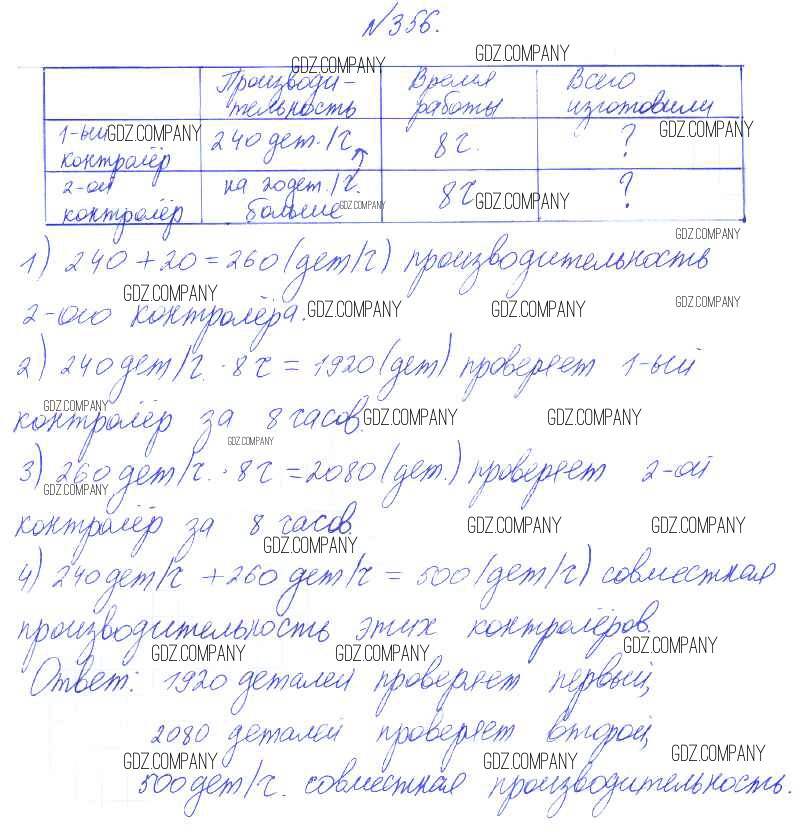 №356.
GDZ.COMPANY
GDZ.COMPANY
Производи- Время Всего
тельность работы изготовили
1-ый GDZ.COMPANY 240 дет./ч. 8 ч. ? GDZ.COMPANY
контролёр
2-ой на 20 дет./ч. 8 ч GDZ.COMPANY ?
контролёр больше GDZ.COMPANY
GDZ.COMPANY
1) 240 + 20 = 260 (дет/ч) производительность
GDZ.COMPANY
2-ого контролёра. GDZ.COMPANY GDZ.COMPANY GDZ.COMPANY
2) 240 дет/ч. · 8 ч = 1920 (дет) проверяет 1-ый
GDZ.COMPANY
контролёр за 8 часов. GDZ.COMPANY GDZ.COMPANY
GDZ.COMPANY
3) 260 дет/ч. · 8 ч = 2080 (дет.) проверяет 2-ой
GDZ.COMPANY
контролёр за 8 часов. GDZ.COMPANY GDZ.COMPANY
GDZ.COMPANY
4) 240 дет/ч + 260 дет/ч = 500 (дет/ч) совместная
производительность этих контролёров.
GDZ.COMPANY GDZ.COMPANY GDZ.COMPANY
Ответ: 1920 деталей проверяет первый,
2080 деталей проверяет второй,
GDZ.COMPANY GDZ.COMPANY GDZ.COMPANY
500 дет/ч. совместная производительность.